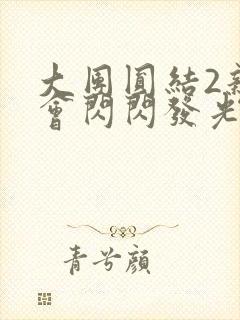 大團圓結2新
會閃閃發光
青兮顏